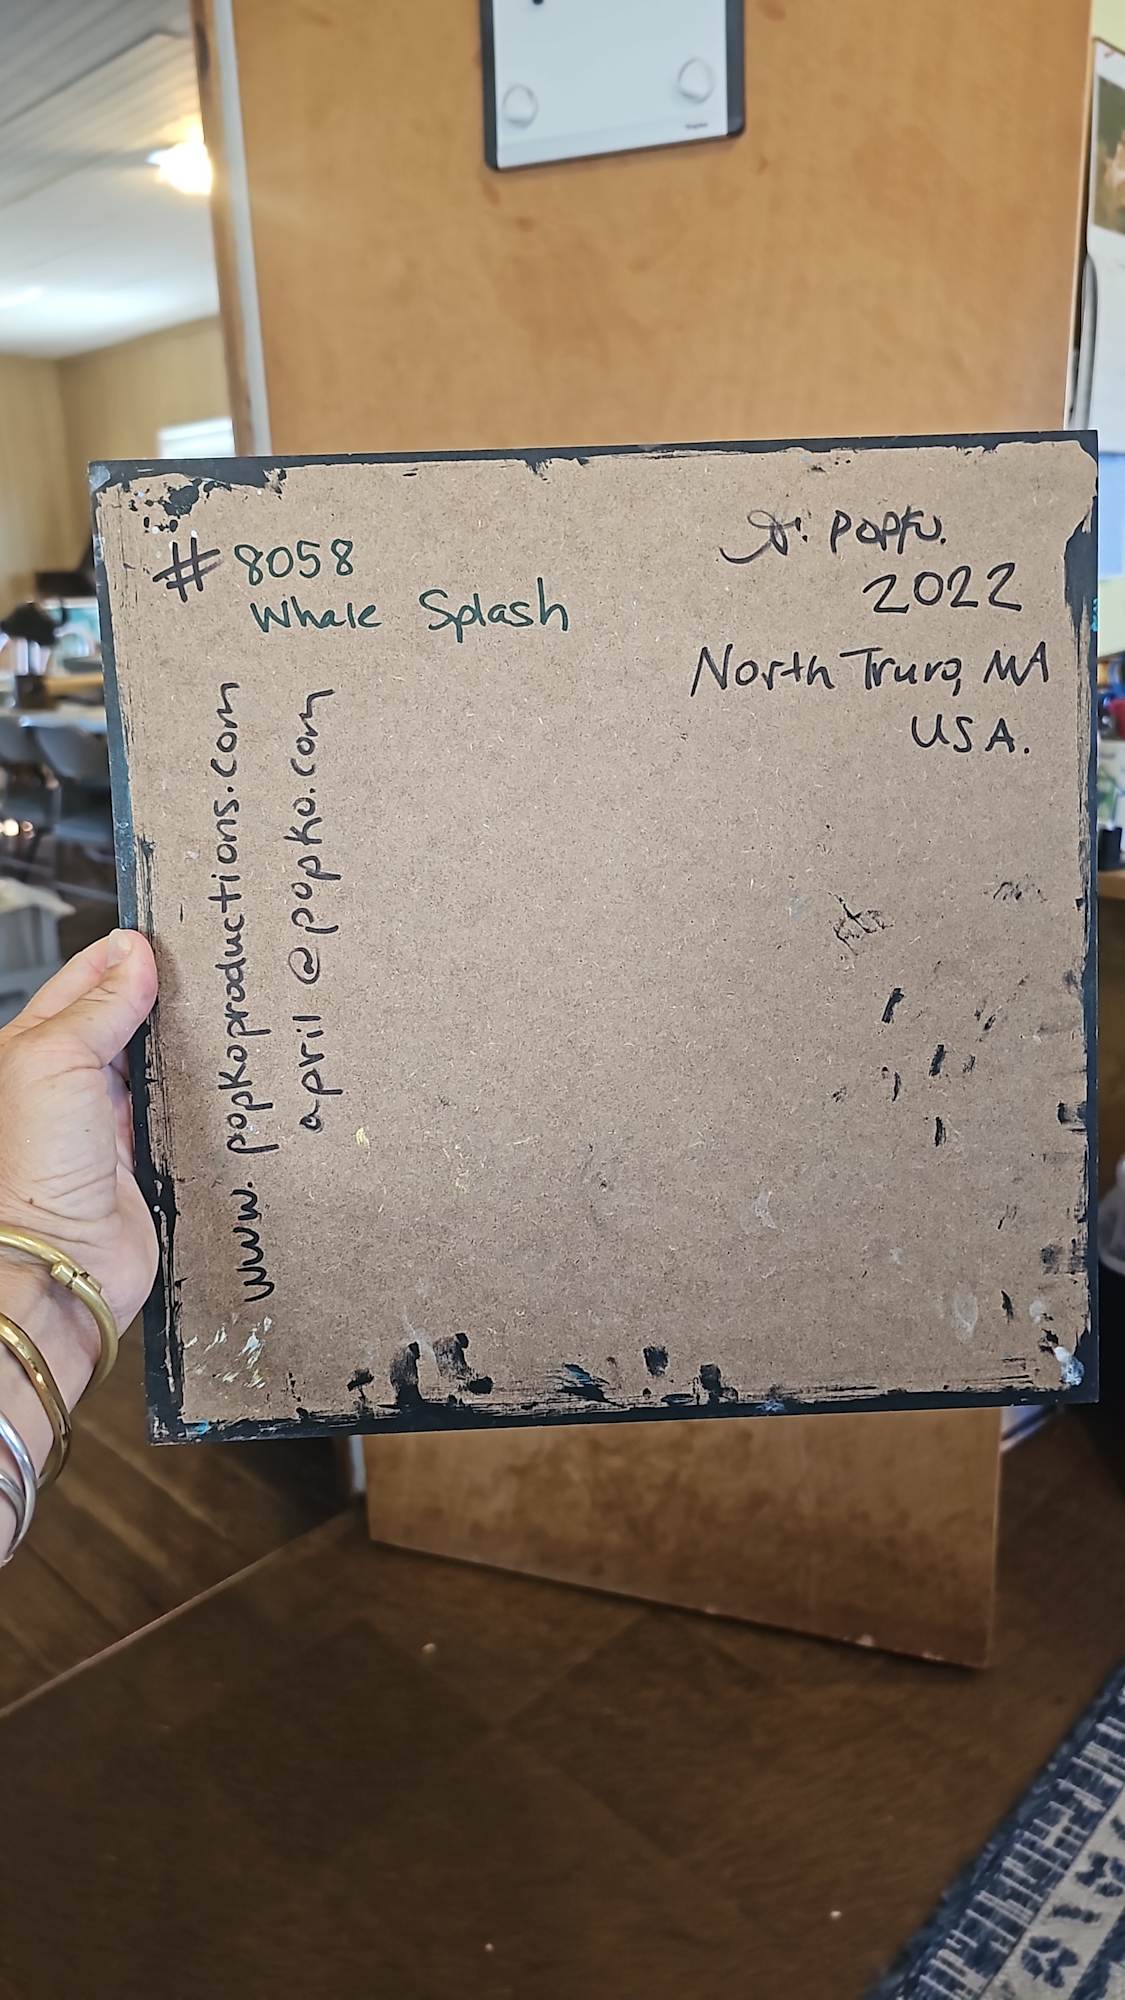 #8058
Whale Splash
A. Popko.
2022
North Truro, MA
USA.
www.popkoproductions.com
april@popko.com